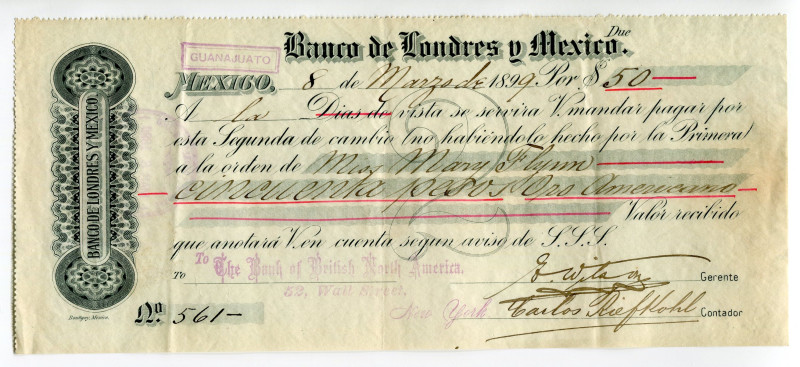 Banco de Londres y Mexico.
Due
GUANAJUATO
MEXICO, 8 de Marzo de 1899. Por $ 50
A la Dias de vista se servira V. mandar pagar por
esta Segunda de cambio (no habiéndolo hecho por la Primera)
a la orden de Miss Mary Flynn
cincuenta pesos Oro Americano
Valor recibido
que anotará V. en cuenta segun aviso de S.S.S.
To To The Bank of British North America.
52, Wall Street.
New York
Gerente
Carlos Riefkohl Contador
Nº 561
BANCO DE LONDRES Y MEXICO.